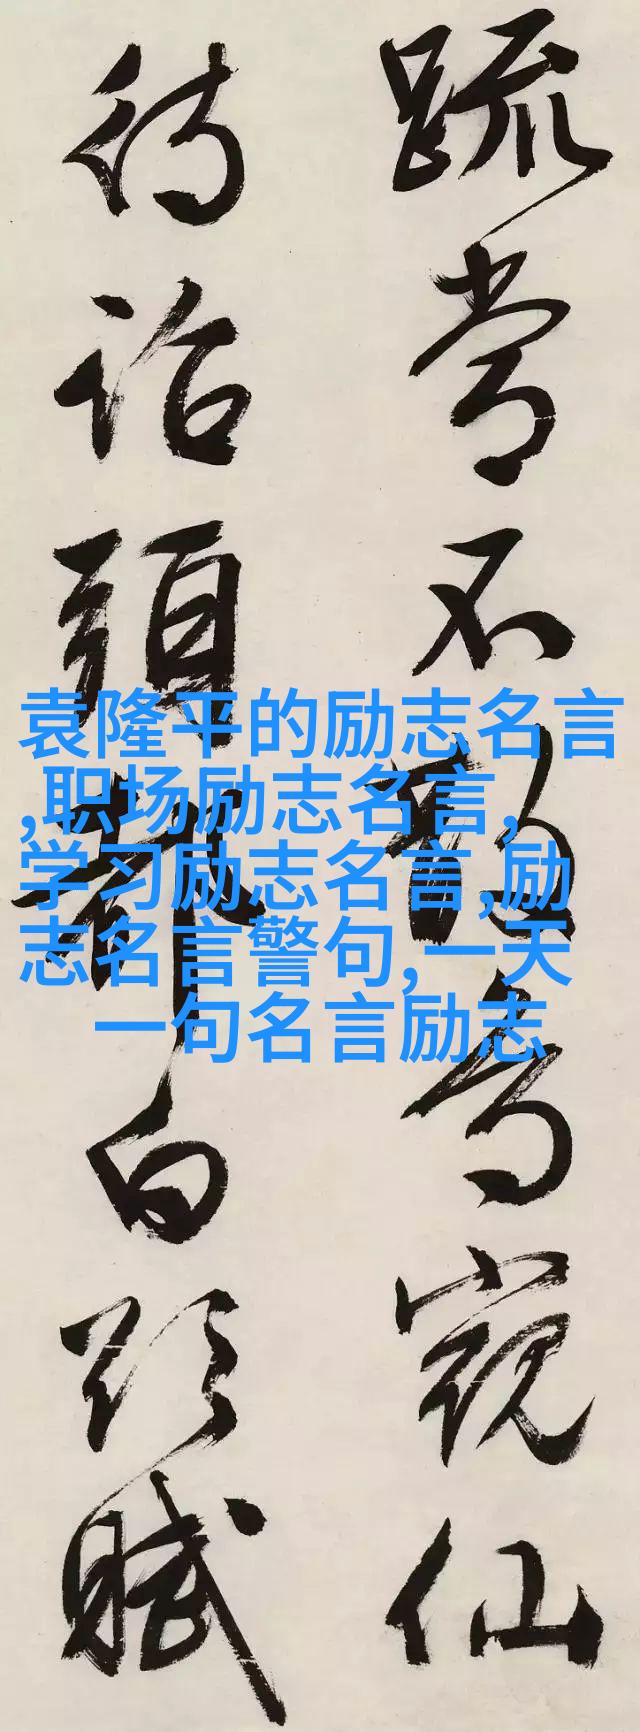 袁隆平的励志名言
,职场励志名言,
学习励志名言,励
志名言警句,一天
一句名言励志
不 窺仙
待詔頭都白 賦